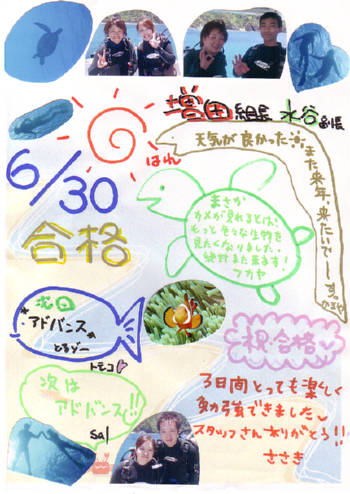 増田組長 水谷副長
はれ
天気が良かった
また来年、来たいでーす。
6/30
合格
まさか
カメが見れるとは!
もっと色々な生物を
見たくなりました。
絶対また来ます!
フカヤ
次回
"アドバンス"
とるゾー
トモコ
祝合格
次は
アドバンス!!
sal
3日間とっても楽しく
勉強できました
スタッフさんありがとう!!
ささき